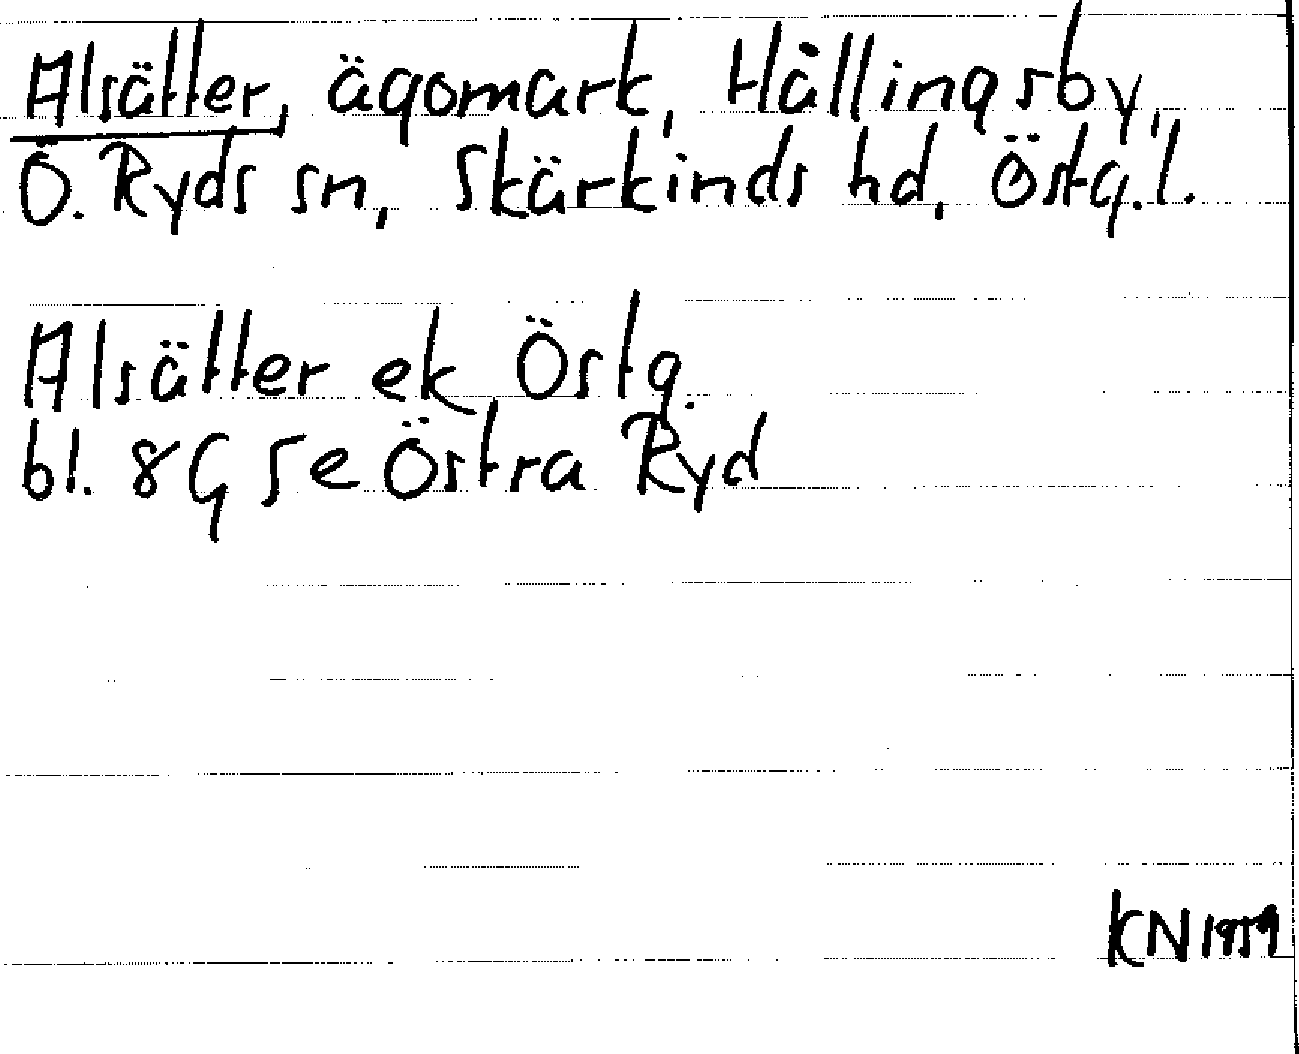 Alsätter, ägomark, Hällingsby,
Ö. Ryds sn, Skärkinds hd, Östg.l.
Alsätter ek Östg.
bl. 8G 5e Östra Ryd
KN 1959